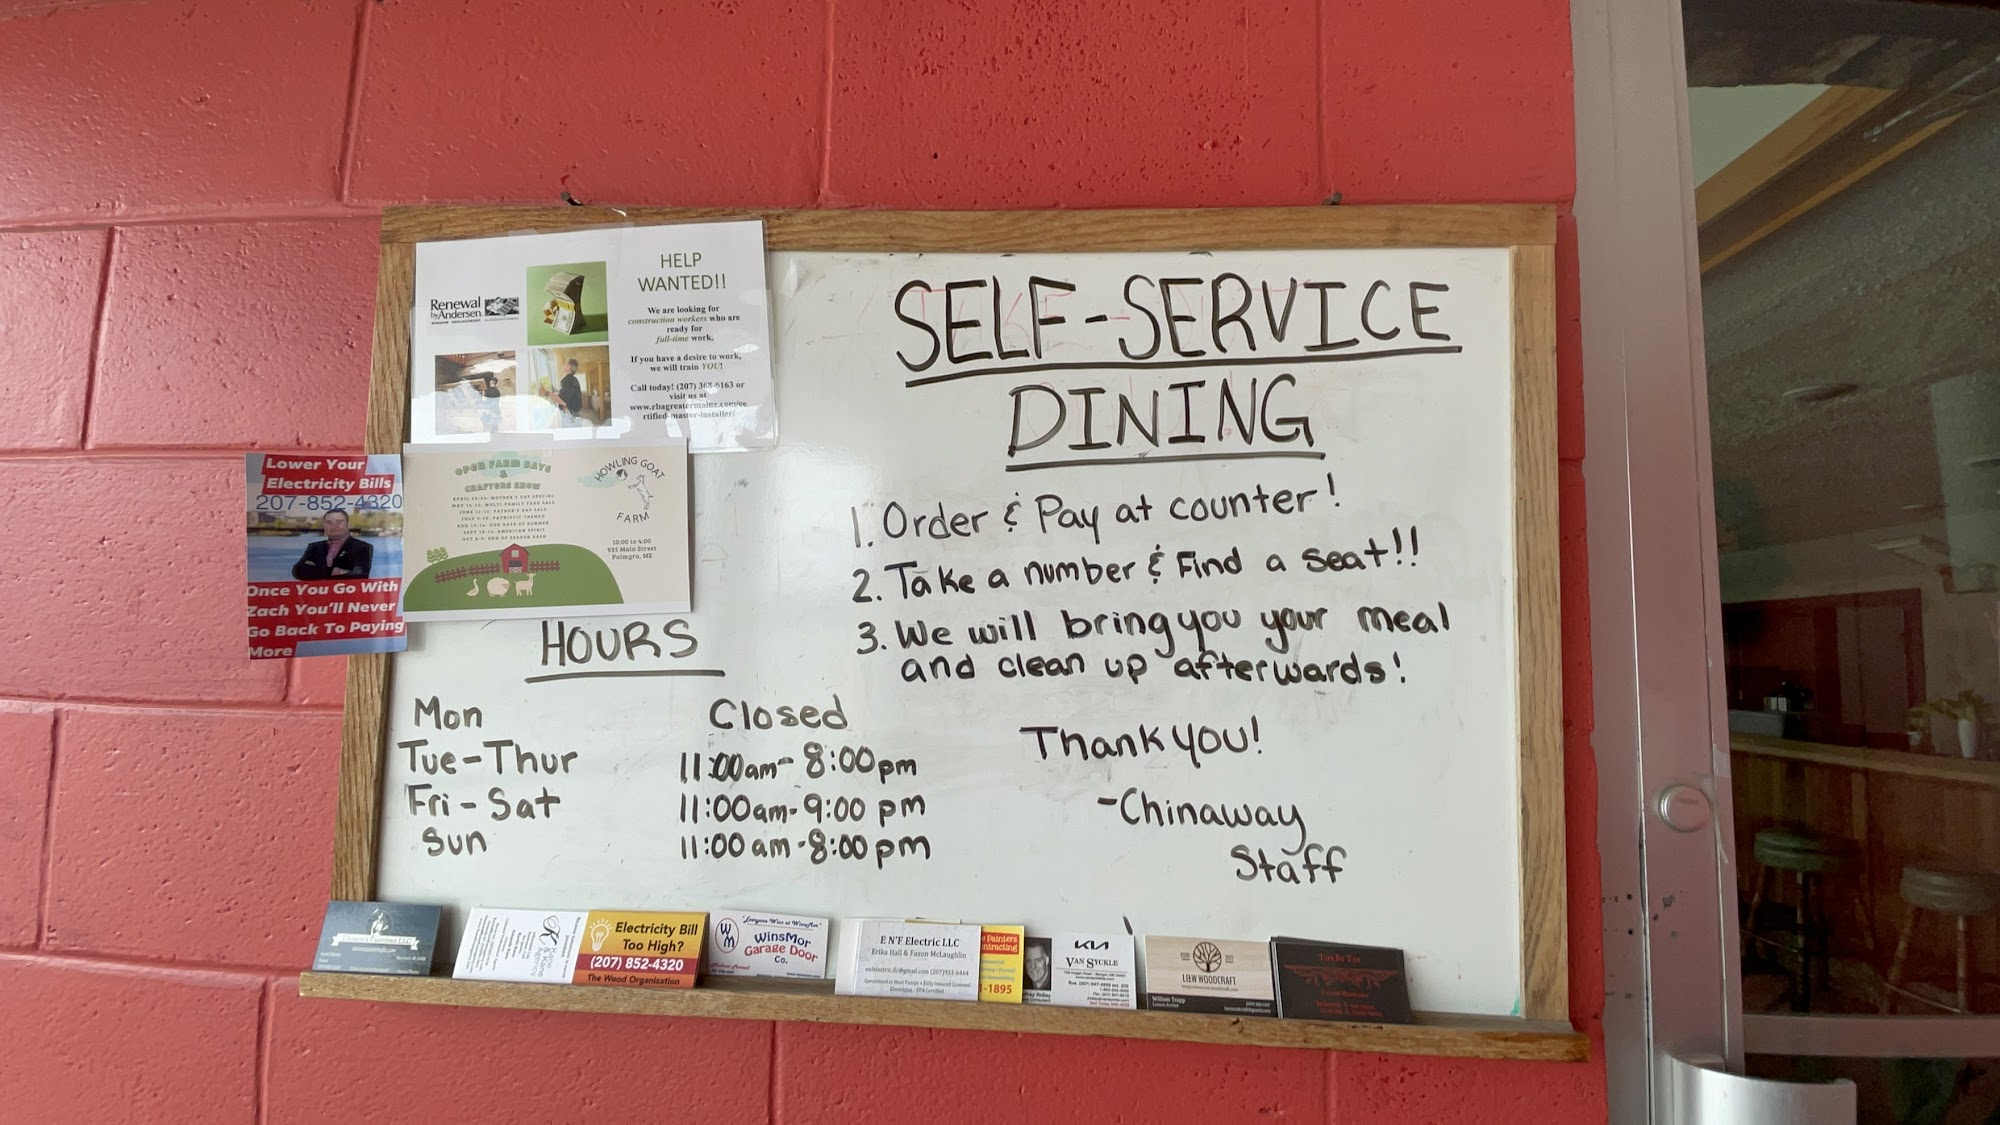 HELP
WANTED!!
Renewal
by Andersen.
WINDOW REPLACEMENT
We are looking for
construction workers who are
ready for
full-time work.
If you have a desire to work,
we will train YOU!
Call today! (207) 368-6163 or
visit us at
www.rbagreatermaine.com/ce
rtified-master-installer/
Lower Your
Electricity Bills
207-852-4320
Once You Go With
Zach You'll Never
Go Back To Paying
More
OPEN FARM DAYS
&
CRAFTERS SHOW
HOWLING GOAT
FARM
10:00 to 4:00
935 Main Street
Palmyra, ME
SELF-SERVICE
DINING
1. Order & Pay at counter!
2. Take a number & Find a seat!!
3. We will bring you your meal
and clean up afterwards!
Thank you!
-Chinaway
Staff
HOURS
Mon Closed
Tue-Thur 11:00am-8:00pm
Fri-Sat 11:00am-9:00 pm
Sun 11:00 am-8:00 pm
Electricity Bill
Too High?
(207) 852-4320
The Wood Organization
"Everyone Wins at WinsMor"
WM
WinsMor
Garage Door
Co.
E N'F Electric LLC
Erika Hall & Faxon McLaughlin
Painters
1-1895
KIA
VAN SYCKLE
L&W WOODCRAFT
William Trapp